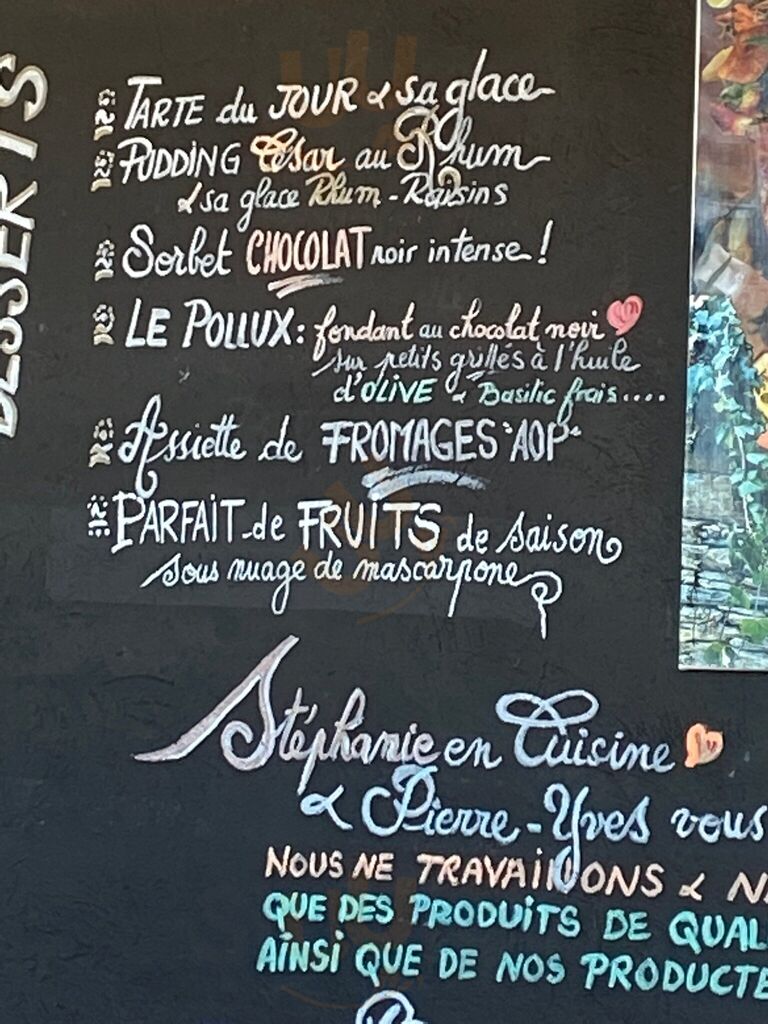 DESSERTS
TARTE du JOUR & sa glace
PUDDING César au Rhum
& sa glace Rhum - Raisins
Sorbet CHOCOLAT noir intense !
LE POLLUX : fondant au chocolat noir
sur petits grillés à l'huile
d'OLIVE & Basilic frais....
Assiette de FROMAGES "AOP"
PARFAIT de FRUITS de saison
sous nuage de mascarpone
Stéphanie en Cuisine
& Pierre-Yves vous
NOUS NE TRAVAILLONS &
QUE DES PRODUITS DE QUAL
AINSI QUE DE NOS PRODUCTE